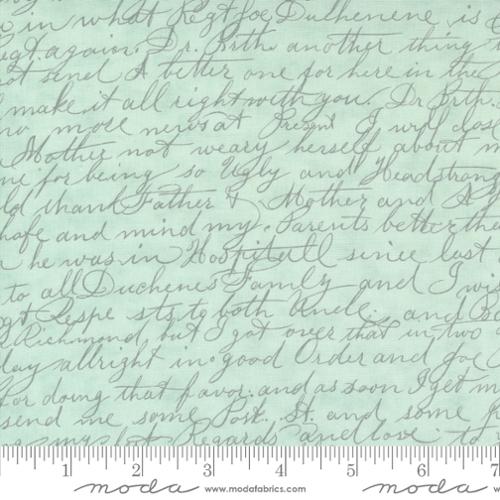 in what Regt Joe Duchenene is
Regt again. Dr. Brth. another thing
not send A better one for here in the
make it all right with you. Dr Brther
no more news at Present I will close
Mother not weary herself about m
me for being so Ugly and Headstrong
ld thank Father & Mother and A
hafe and mind my Parents better tha
he was in Hospitall since last
to all Duchenes Family and I wis
Respe sts to both Uncle. and
Richmond but I got over that in two
day allright in good Order and Joe
for doing that favor. and as soon I get m
send me some Post. St. and some
my Regards and love to
1 2 3 4 5 6 7
moda www.modafabrics.com moda m